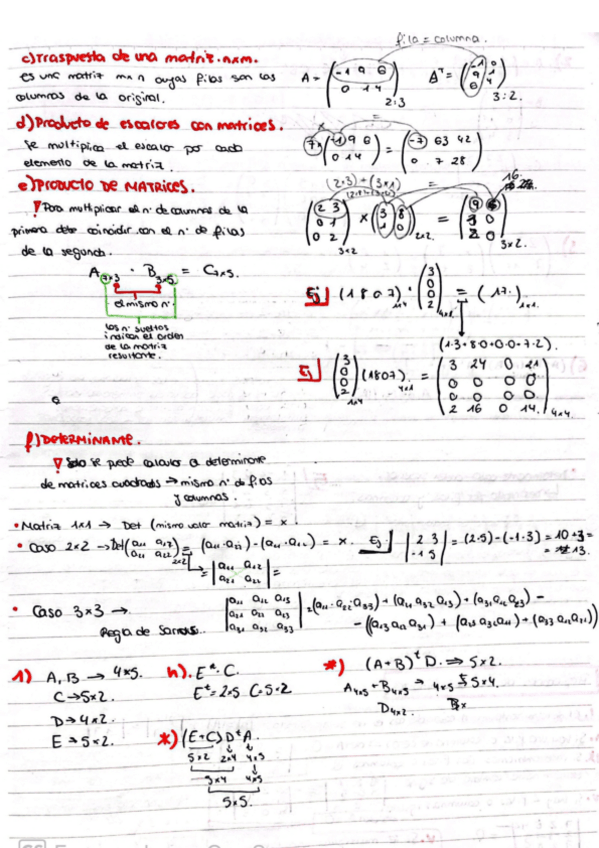 fila = columna.
c) Traspuesta de una matriz nxm.
es una matriz mxn cuyas filas son las
columnas de la original.
A = (-1 9 6
0 1 4) 2:3
Aᵗ = (-1 0
9 1
6 4) 3:2.
d) Producto de escalares con matrices.
Se multiplica el escalar por cada
elemento de la matriz.
7 · (-1 9 6
0 1 4) = (-7 63 42
0 7 28)
e) PRODUCTO DE MATRICES.
! Para multiplicar el nº de columnas de la
primera debe coincidir con el nº de filas
de la segunda.
(2·3) + (3×1) =
16
(2 3
0 1
0 2) 3x2 × (3 8
1 0) 2x2 = (9
0
0) 3x2
A 7x3 · B 3x5 = C 7x5.
el mismo nº.
los nº sueltos
indican el orden
de la matriz
resultante.
Ej (1 8 0 7) 1x4 · (3
0
0
2) 4x1 = (17) 1x1.
(1·3 + 8·0 + 0·0 - 7·2).
Ej (3
0
0
2) 1x4 (1807) 4x1 = (3 24 0 21
0 0 0 0
0 0 0 0
2 16 0 14) 4x4
f) DETERMINANTE.
! Solo se puede calcular el determinante
de matrices cuadradas → mismo nº de filas
y columnas.
• Matriz 1x1 → Det (mismo valor matriz) = x.
• Caso 2x2 → Det(a₁₁ a₁₂
a₂₁ a₂₂) 2x2 = (a₁₁·a₂₂) - (a₂₁·a₁₂) = x.
= |a₁₁ a₁₂
a₂₁ a₂₂| =
Ej |2 3
-1 5| = (2·5) - (-1·3) = 10+3 =
= 13.
• Caso 3x3 →
Regla de Sarrus.
|a₁₁ a₁₂ a₁₃
a₂₁ a₂₂ a₂₃
a₃₁ a₃₂ a₃₃| = (a₁₁·a₂₂·a₃₃) +
1) A, B → 4x5.
C → 5x2.
D → 4x2.
E → 5x2.
h). Eᵗ·C.
Eᵗ = 2x5 C = 5x2
*) (E+C) Dᵗ A.
5x2 2x4 4x5
5x4 4x5
5x5.
*) (A+B)ᵗ D. ⇒ 5x2.
A4x5 + B4x5 → 4x5 → 5x4.
D4x2.